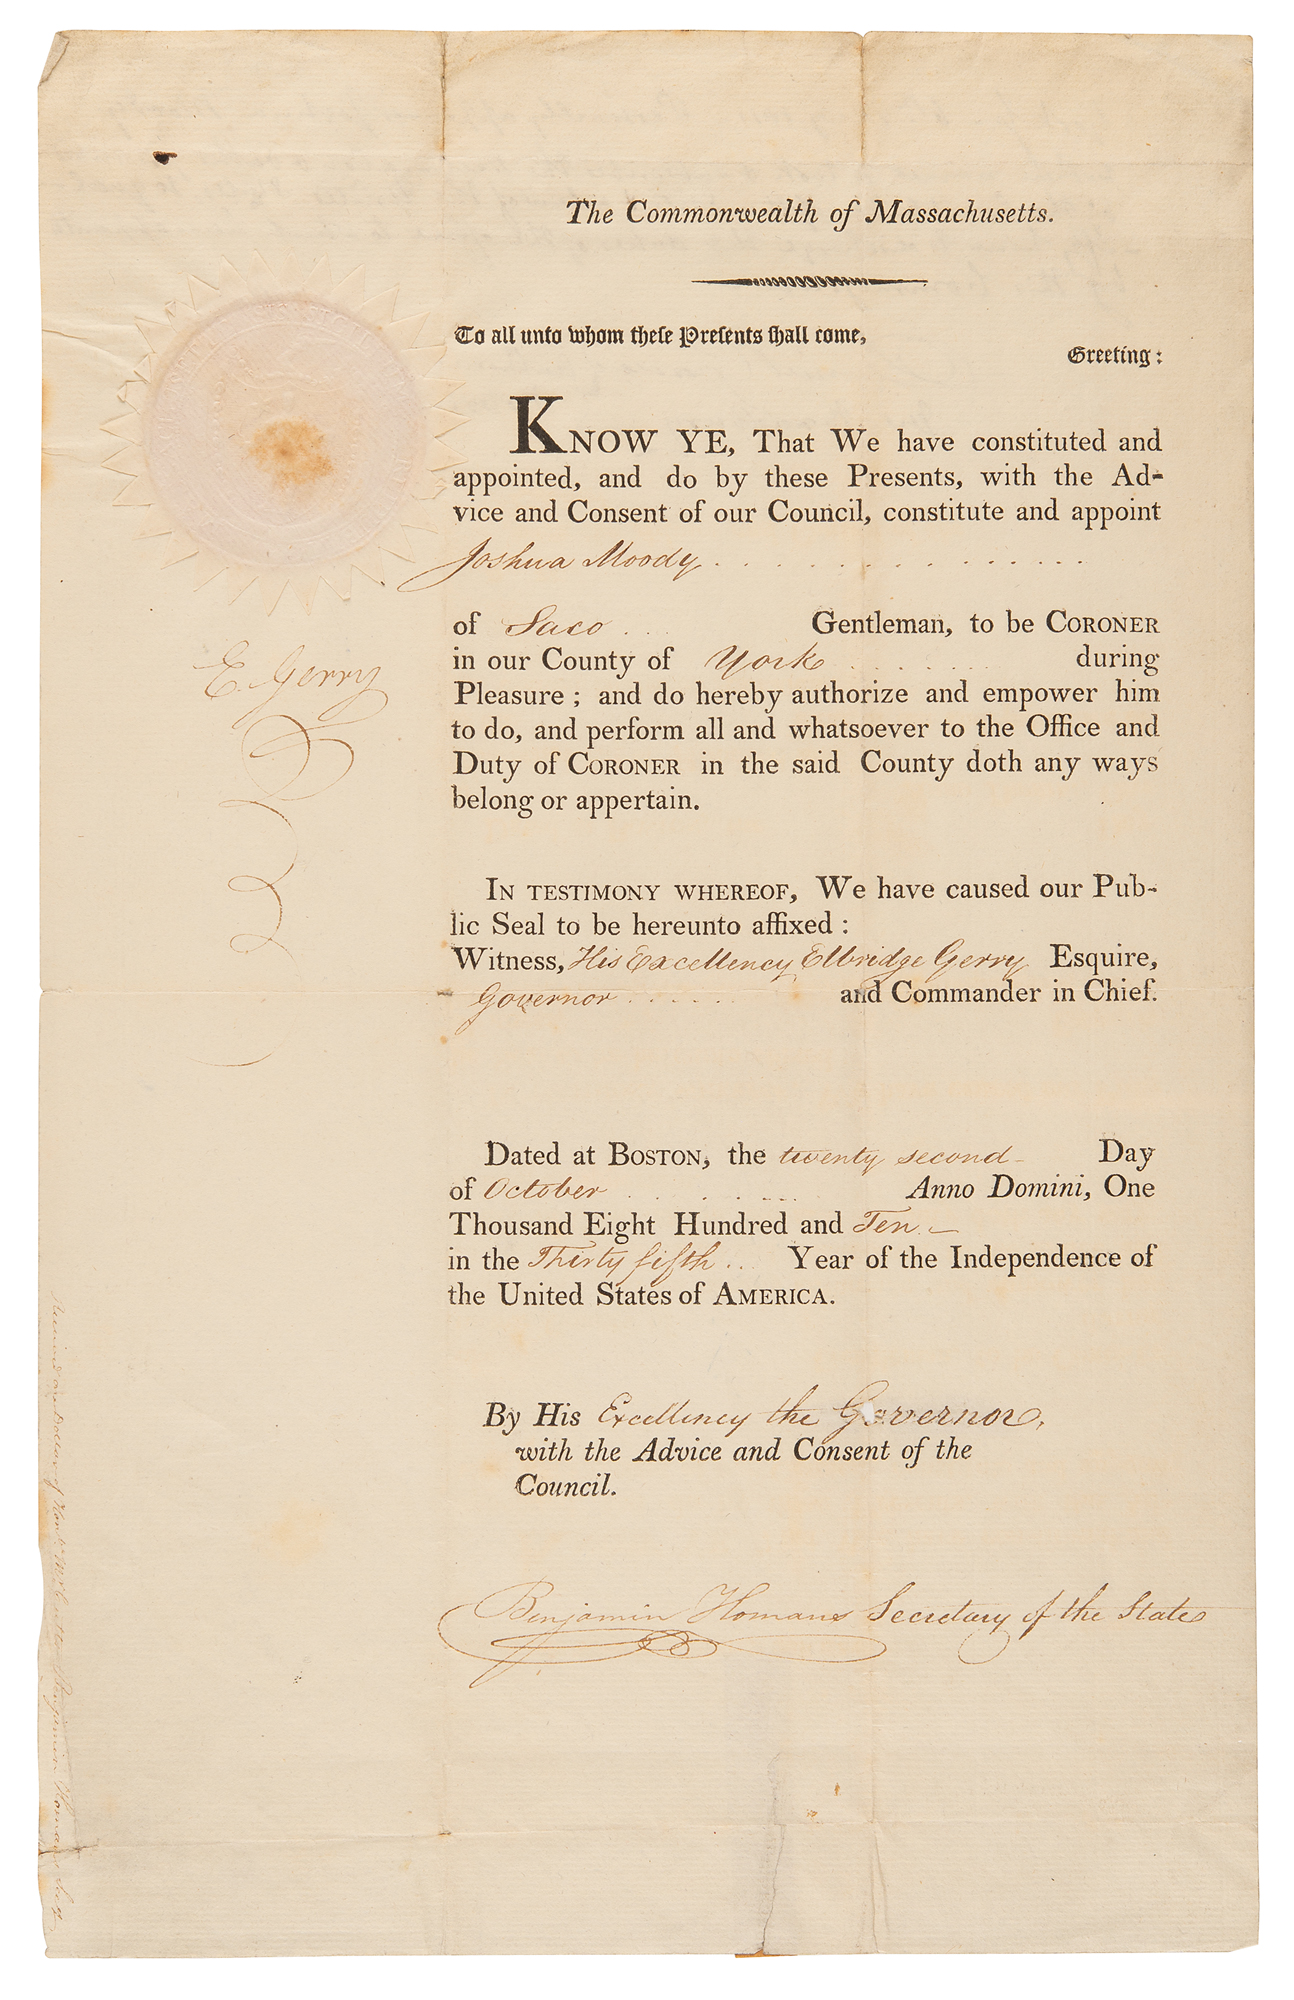 The Commonwealth of Massachusetts.
To all unto whom theſe Preſents ſhall come,
Greeting:
KNOW YE, That We have constituted and
appointed, and do by these Presents, with the Ad-
vice and Consent of our Council, constitute and appoint
Joshua Moody
of Saco Gentleman, to be CORONER
in our County of York during
Pleasure; and do hereby authorize and empower him
to do, and perform all and whatsoever to the Office and
Duty of CORONER in the said County doth any ways
belong or appertain.
E. Gerry
IN TESTIMONY WHEREOF, We have caused our Pub-
lic Seal to be hereunto affixed:
Witness, His Excellency Elbridge Gerry Esquire,
Governor and Commander in Chief.
Dated at BOSTON, the twenty second Day
of October Anno Domini, One
Thousand Eight Hundred and Ten
in the Thirty fifth Year of the Independence of
the United States of AMERICA.
By His Excellency the Governor,
with the Advice and Consent of the
Council.
Benjamin Homans Secretary of the State
Received one Dollar of Honble Benjamin Homans Secy